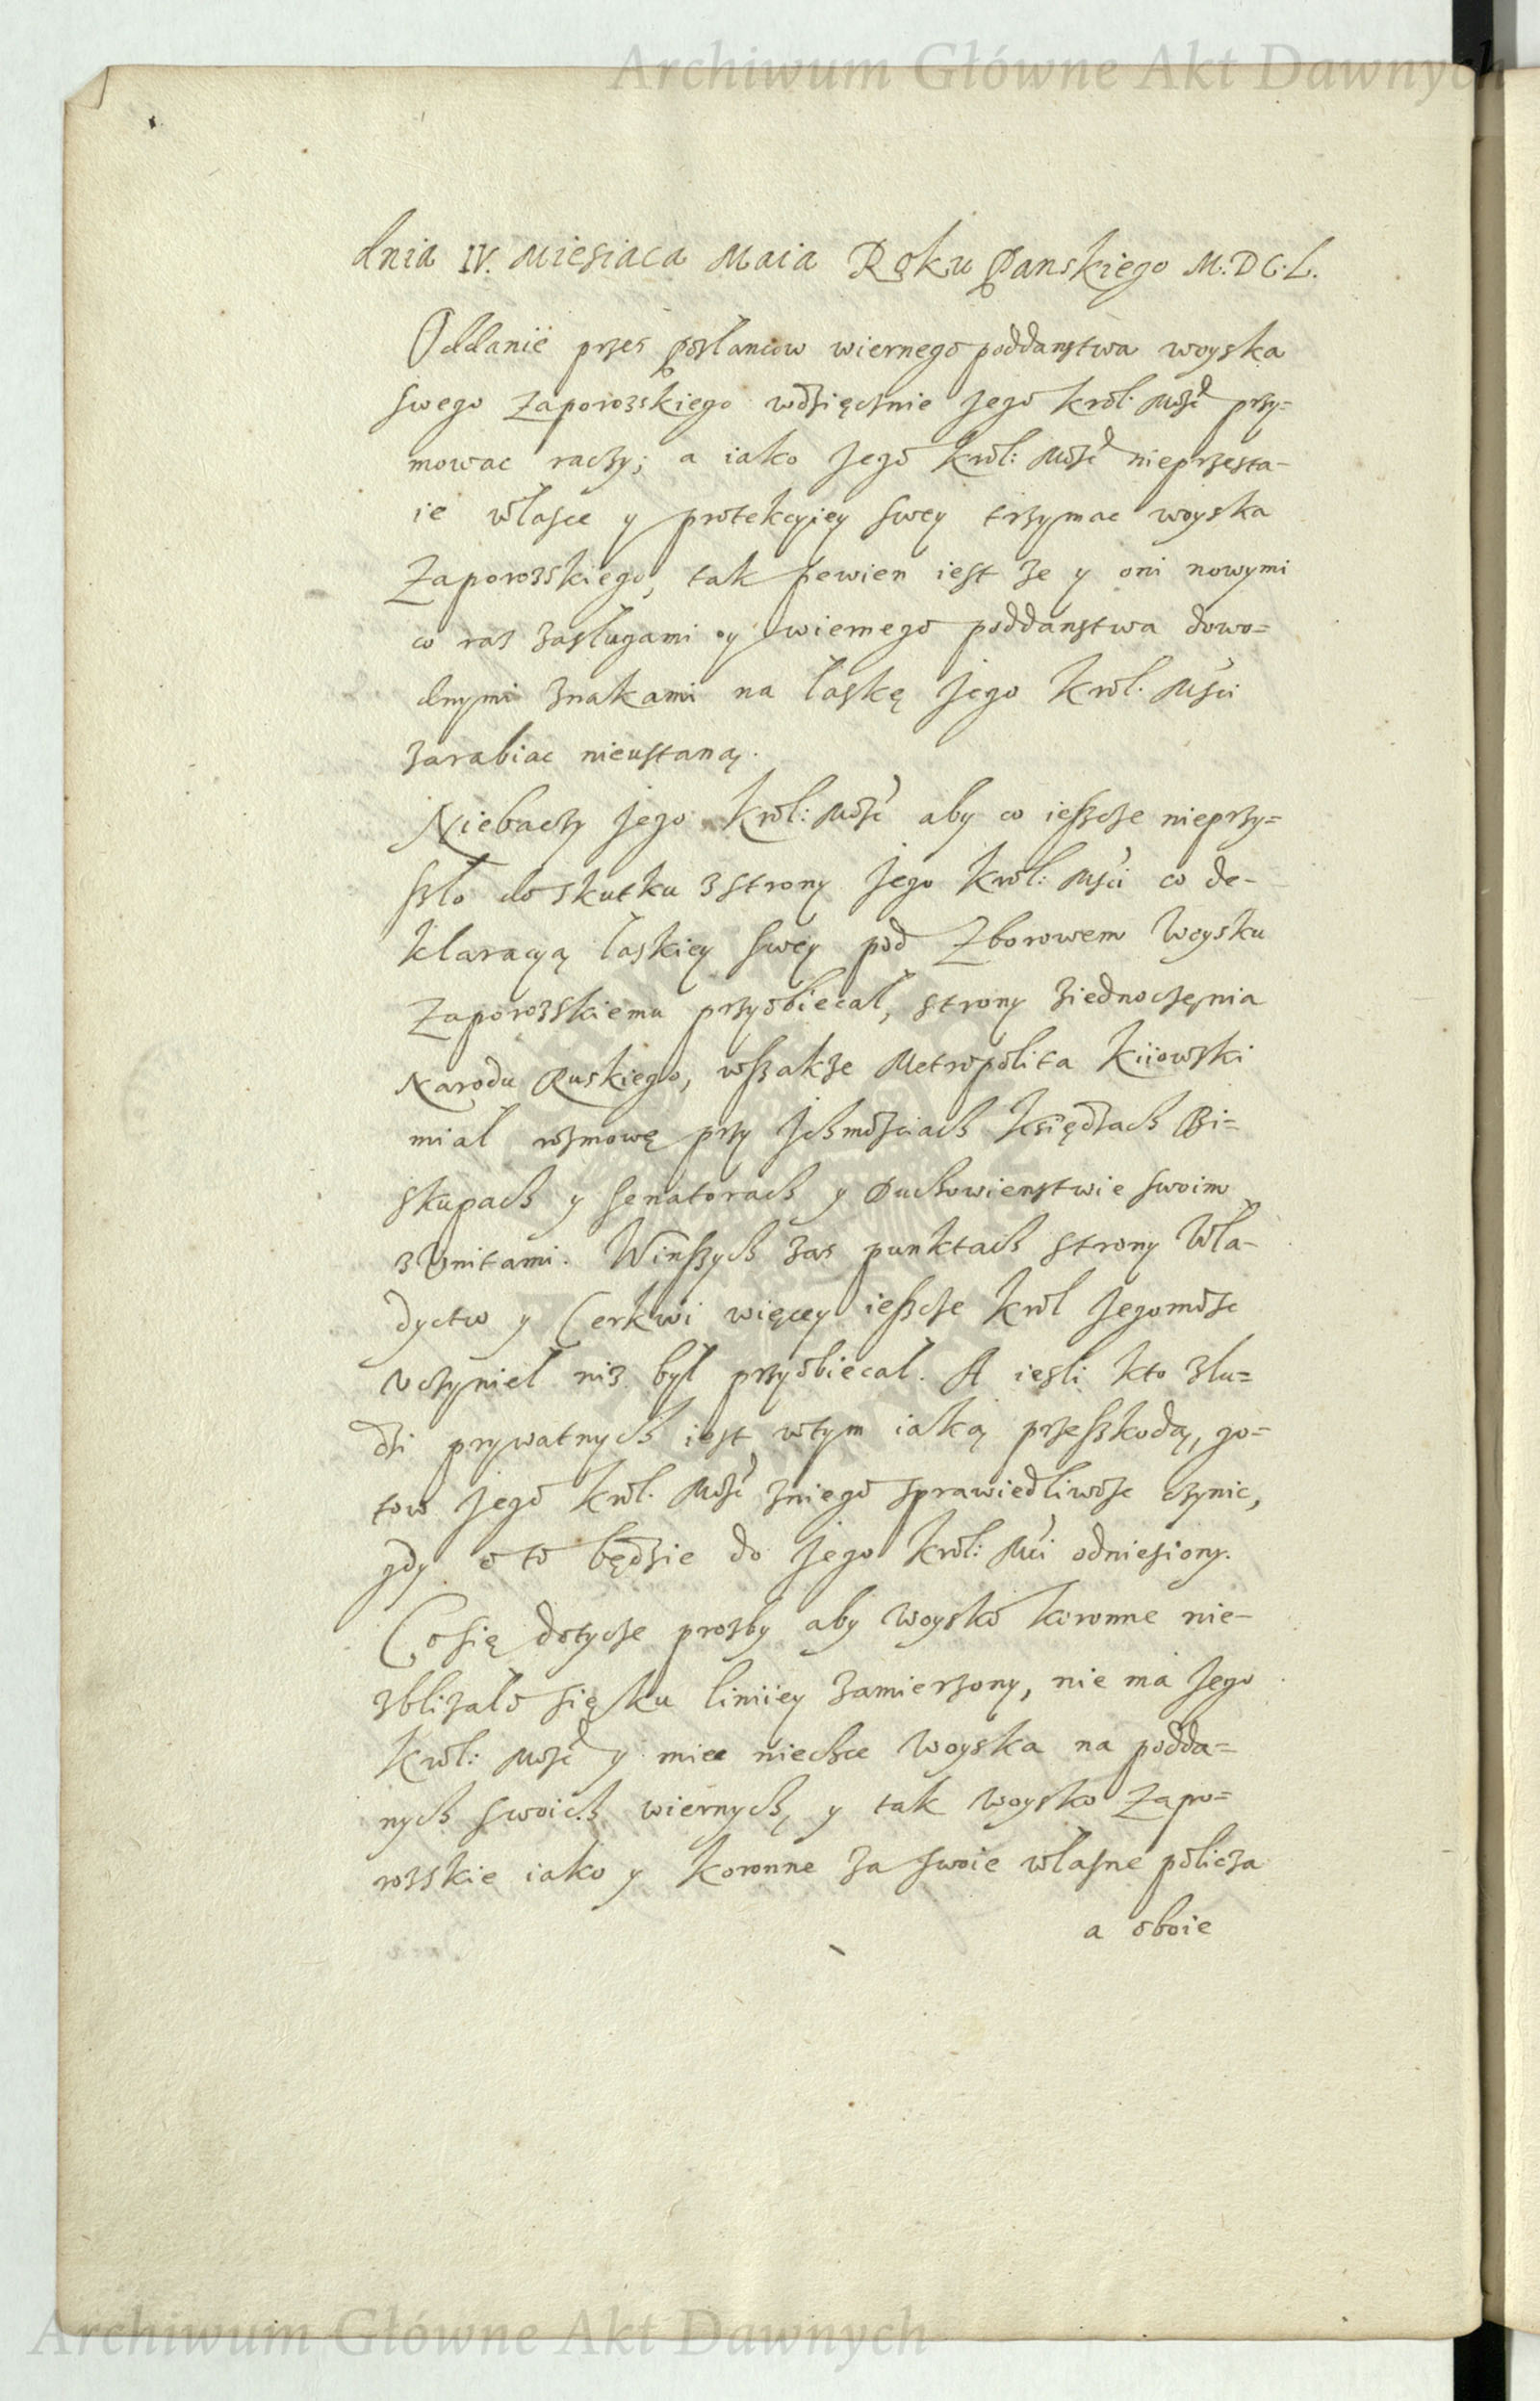 Archiwum Główne Akt Dawnych
dnia IV. Miesiaca Maia Roku Panskiego M.DC.L.
Oddanie przes posłancow wiernego poddanstwa woyska
swego Zaporozskiego wdzięcznie Jego Krol: Mość przy=
mowac raczy; a iako Jego Krol: Mość nieprzesta-
ie własce y protekcyiey swey trzymac woyska
Zaporozskiego, tak pewien iest ze y oni nowymi
co raz zasługami y wiernego poddanstwa dowo=
dnymi znakami na łaskę Jego Krol. Mści
zarabiac nieustaną.
Niebaczy Jego Krol: Mość aby co ieszcze nieprzy=
szło do skutku zstrony Jego Krol: Mści co de-
klaracyą łaskiey swey pod Zborowem Woysku
Zaporozskiemu przyobiecał, strony ziednoczęnia
Narodu Ruskiego, wszakze Metropolita Kiiowski
miał rozmowę przy Jchmościach Księdzach Bi=
skupach y Senatorach y Duchowienstwie swoim
z Unitami. Winszych zas punktach strony Wła-
dyctw y Cerkwi więcey ieszcze Krol Jegomośc
uczynieł niz był przyobiecał. A iesli kto zlu=
dzi prywatnych iest wtym iaką przeszkodą, go=
tow Jego Krol. Mość zniego sprawiedliwośc czynic,
gdy o to będzie do Jego Krol: Mci odniesiony.
Co się dotycze prozby aby Woysko Koronne nie-
zblizało się ku liniiey zamierzony, nie ma Jego
Krol: Mość y miec niechce Woyska na podda=
nych swoich wiernych, y tak Woysko Zapo=
rozskie iako y Koronne za swoie własne policza
a oboie
Archiwum Główne Akt Dawnych